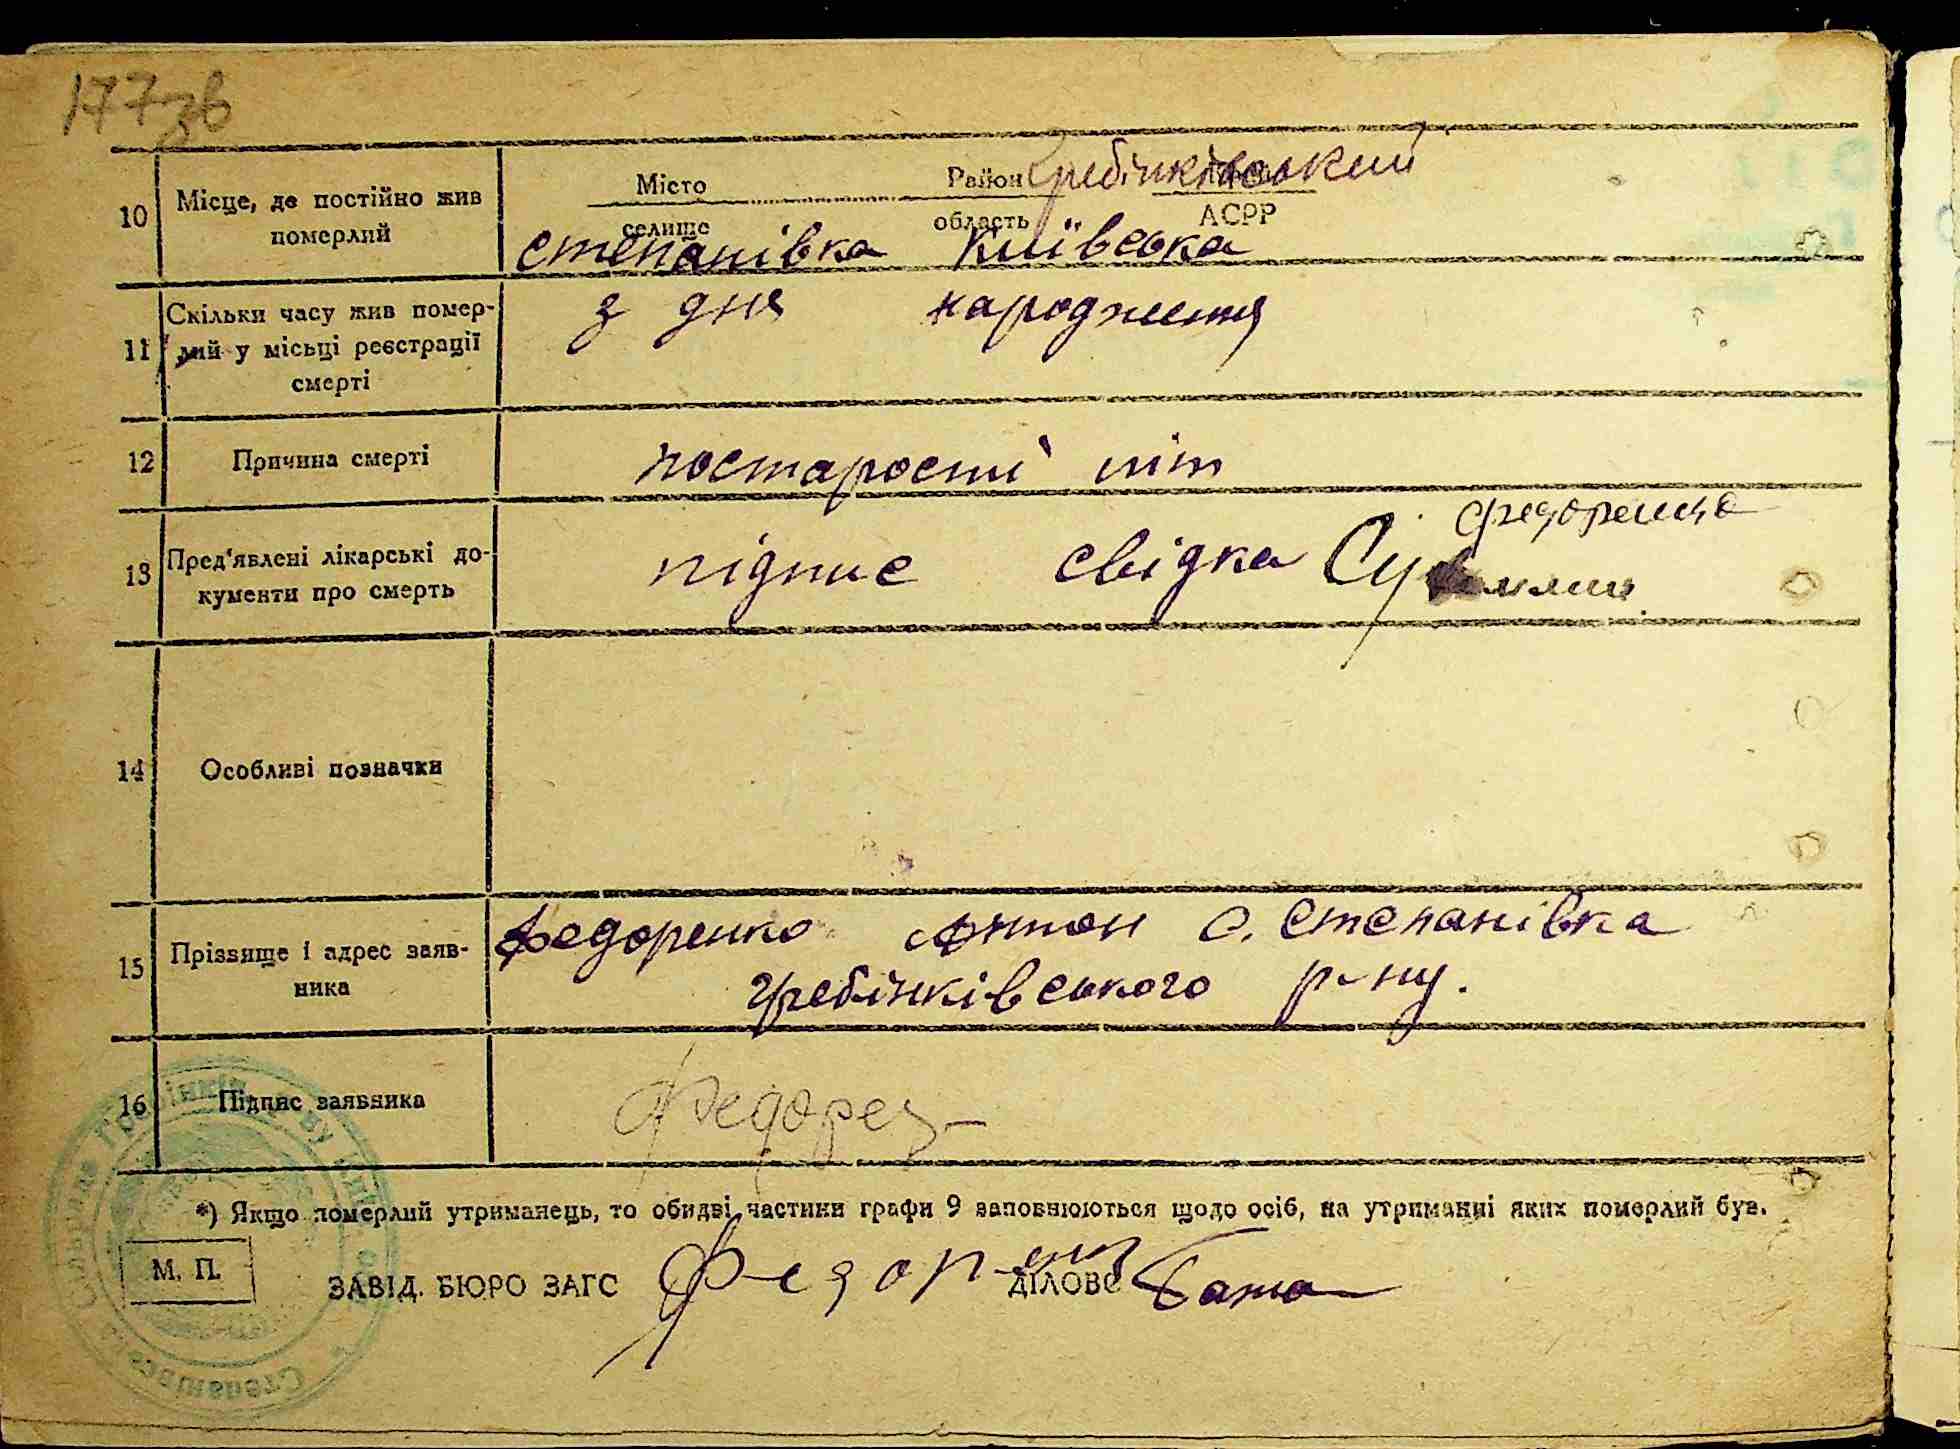 177зв
10 Місце, де постійно жив померлий
Місто Район Гребінківський
селище область АСРР
степанівка київська
11 Скільки часу жив помер-
лий у місьці реєстрації
смерті
з дня народження
12 Причина смерті
постарості літ
13 Пред'явлені лікарські до-
кументи про смерть
підпис свідка
14 Особливі позначки
15 Прізвище і адрес заяв-
ника
Федоренко Антон с. Степанівка
гребінківського р-ну.
16 Підпис заявника
Федорен
*) Якщо померлий утриманець, то обидві частини графи 9 заповнюються щодо осіб, на утриманні яких померлий був.
М. П.
ЗАВІД. БЮРО ЗАГС ДІЛОВС